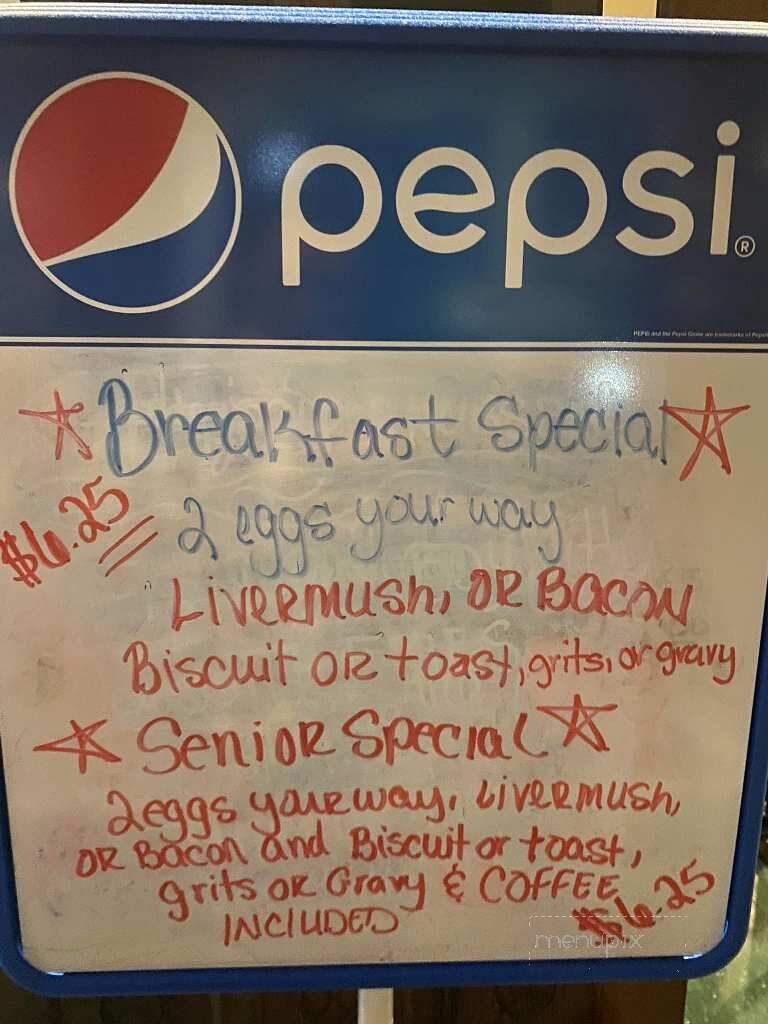 pepsi®
PEPSI and the Pepsi Globe are trademarks of
Breakfast Special
$6.25 2 eggs your way
Livermush, OR Bacon
Biscuit OR toast, grits, or gravy
Senior Special
2 eggs your way, Livermush,
OR Bacon and Biscuit or toast,
grits or Gravy & COFFEE
INCLUDED $6.25
menupix